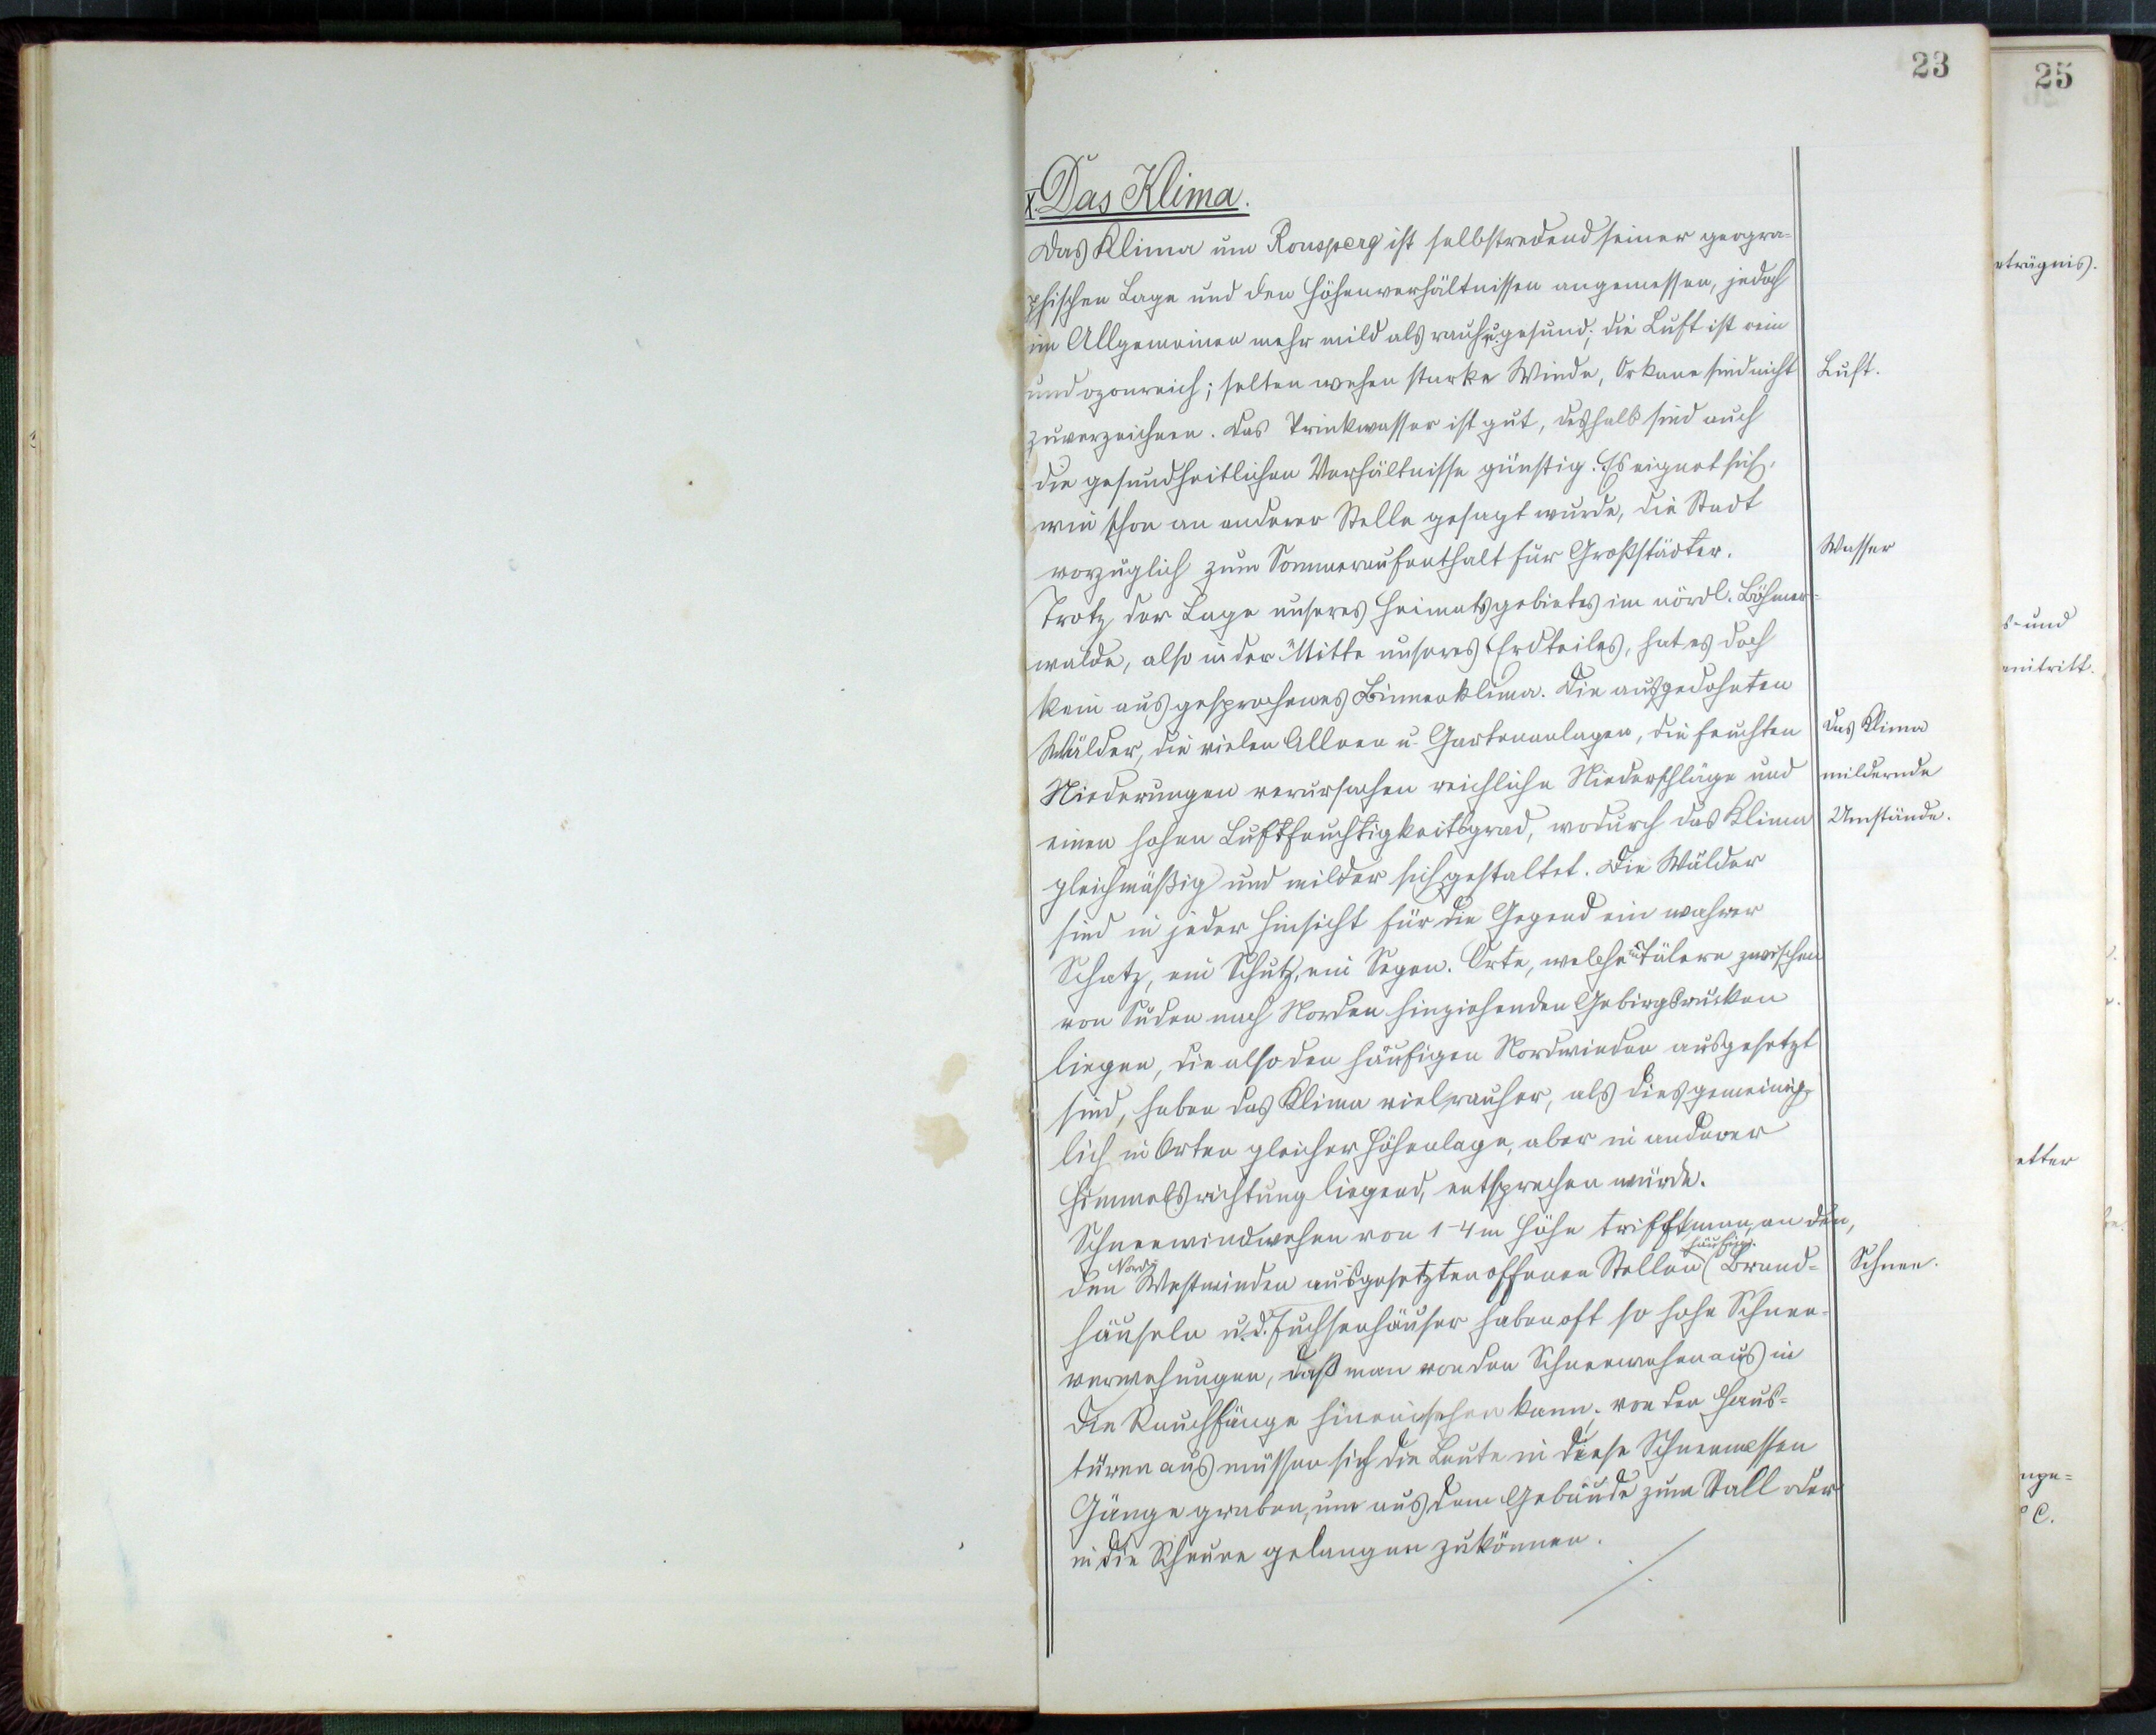 23
25
X. Das Klima.
Das Klima um Ronsperg ist selbstredend seiner geogra-
phischen Lage und den Höhenverhältnissen angemessen, jedoch
im Allgemeinen mehr mild als rauh u. gesund; die Luft ist rein
und ozonreich; selten wehen starke Winde, Orkane sind nicht
Luft.
zu verzeichnen. Das Trinkwasser ist gut, deshalb sind auch
die gesundheitlichen Verhältnisse günstig. Es eignet sich,
wie schon an anderer Stelle gesagt wurde, die Stadt
vorzüglich zum Sommeraufenthalt für Großstädter.
Wasser
Trotz der Lage unseres Heimatsgebietes im nördl. Böhmer-
walde, also in der Mitte unseres Erdteiles, hat es doch
kein ausgesprochenes Binnenklima. Die ausgedehnten
Wälder, die vielen Alleen u. Gartenanlagen, die feuchten
Das Klima
Niederungen verursachen reichliche Niederschläge und
mildernde
einen hohen Luftfeuchtigkeitsgrad, wodurch das Klima
Umstände.
gleichmäßig und milder sich gestaltet. Die Wälder
sind in jeder Hinsicht für die Gegend ein wahrer
Schatz, ein Schutz, ein Segen. Orte, welche in Tälern zwischen
von Süden nach Norden hinziehenden Gebirgsrücken
liegen, die also den häufigen Nordwinden ausgesetzt
sind, haben das Klima viel rauher, als dies gemeinig-
lich in Orten gleicher Höhenlage, aber in anderer
Himmelsrichtung liegend, entsprechen würde.
Schneewindwehen von 1-4 m Höhe trifft man, an den,
den Nord- Westwinden ausgesetzten offenen Stellen häufig. (Brand-
Schnee.
häuseln u. d. Fuchsenhäuser haben oft so hohe Schnee-
verwehungen, daß man von den Schneewehen aus in
die Rauchfänge hineinsehen kann; von den Haus-
türen aus müssen sich die Leute in diese Schneemassen
Gänge graben, um aus dem Gebäude zum Stall oder
in die Scheune gelangen zu können.
./.
eträgnis.
s- und
etter
° C.